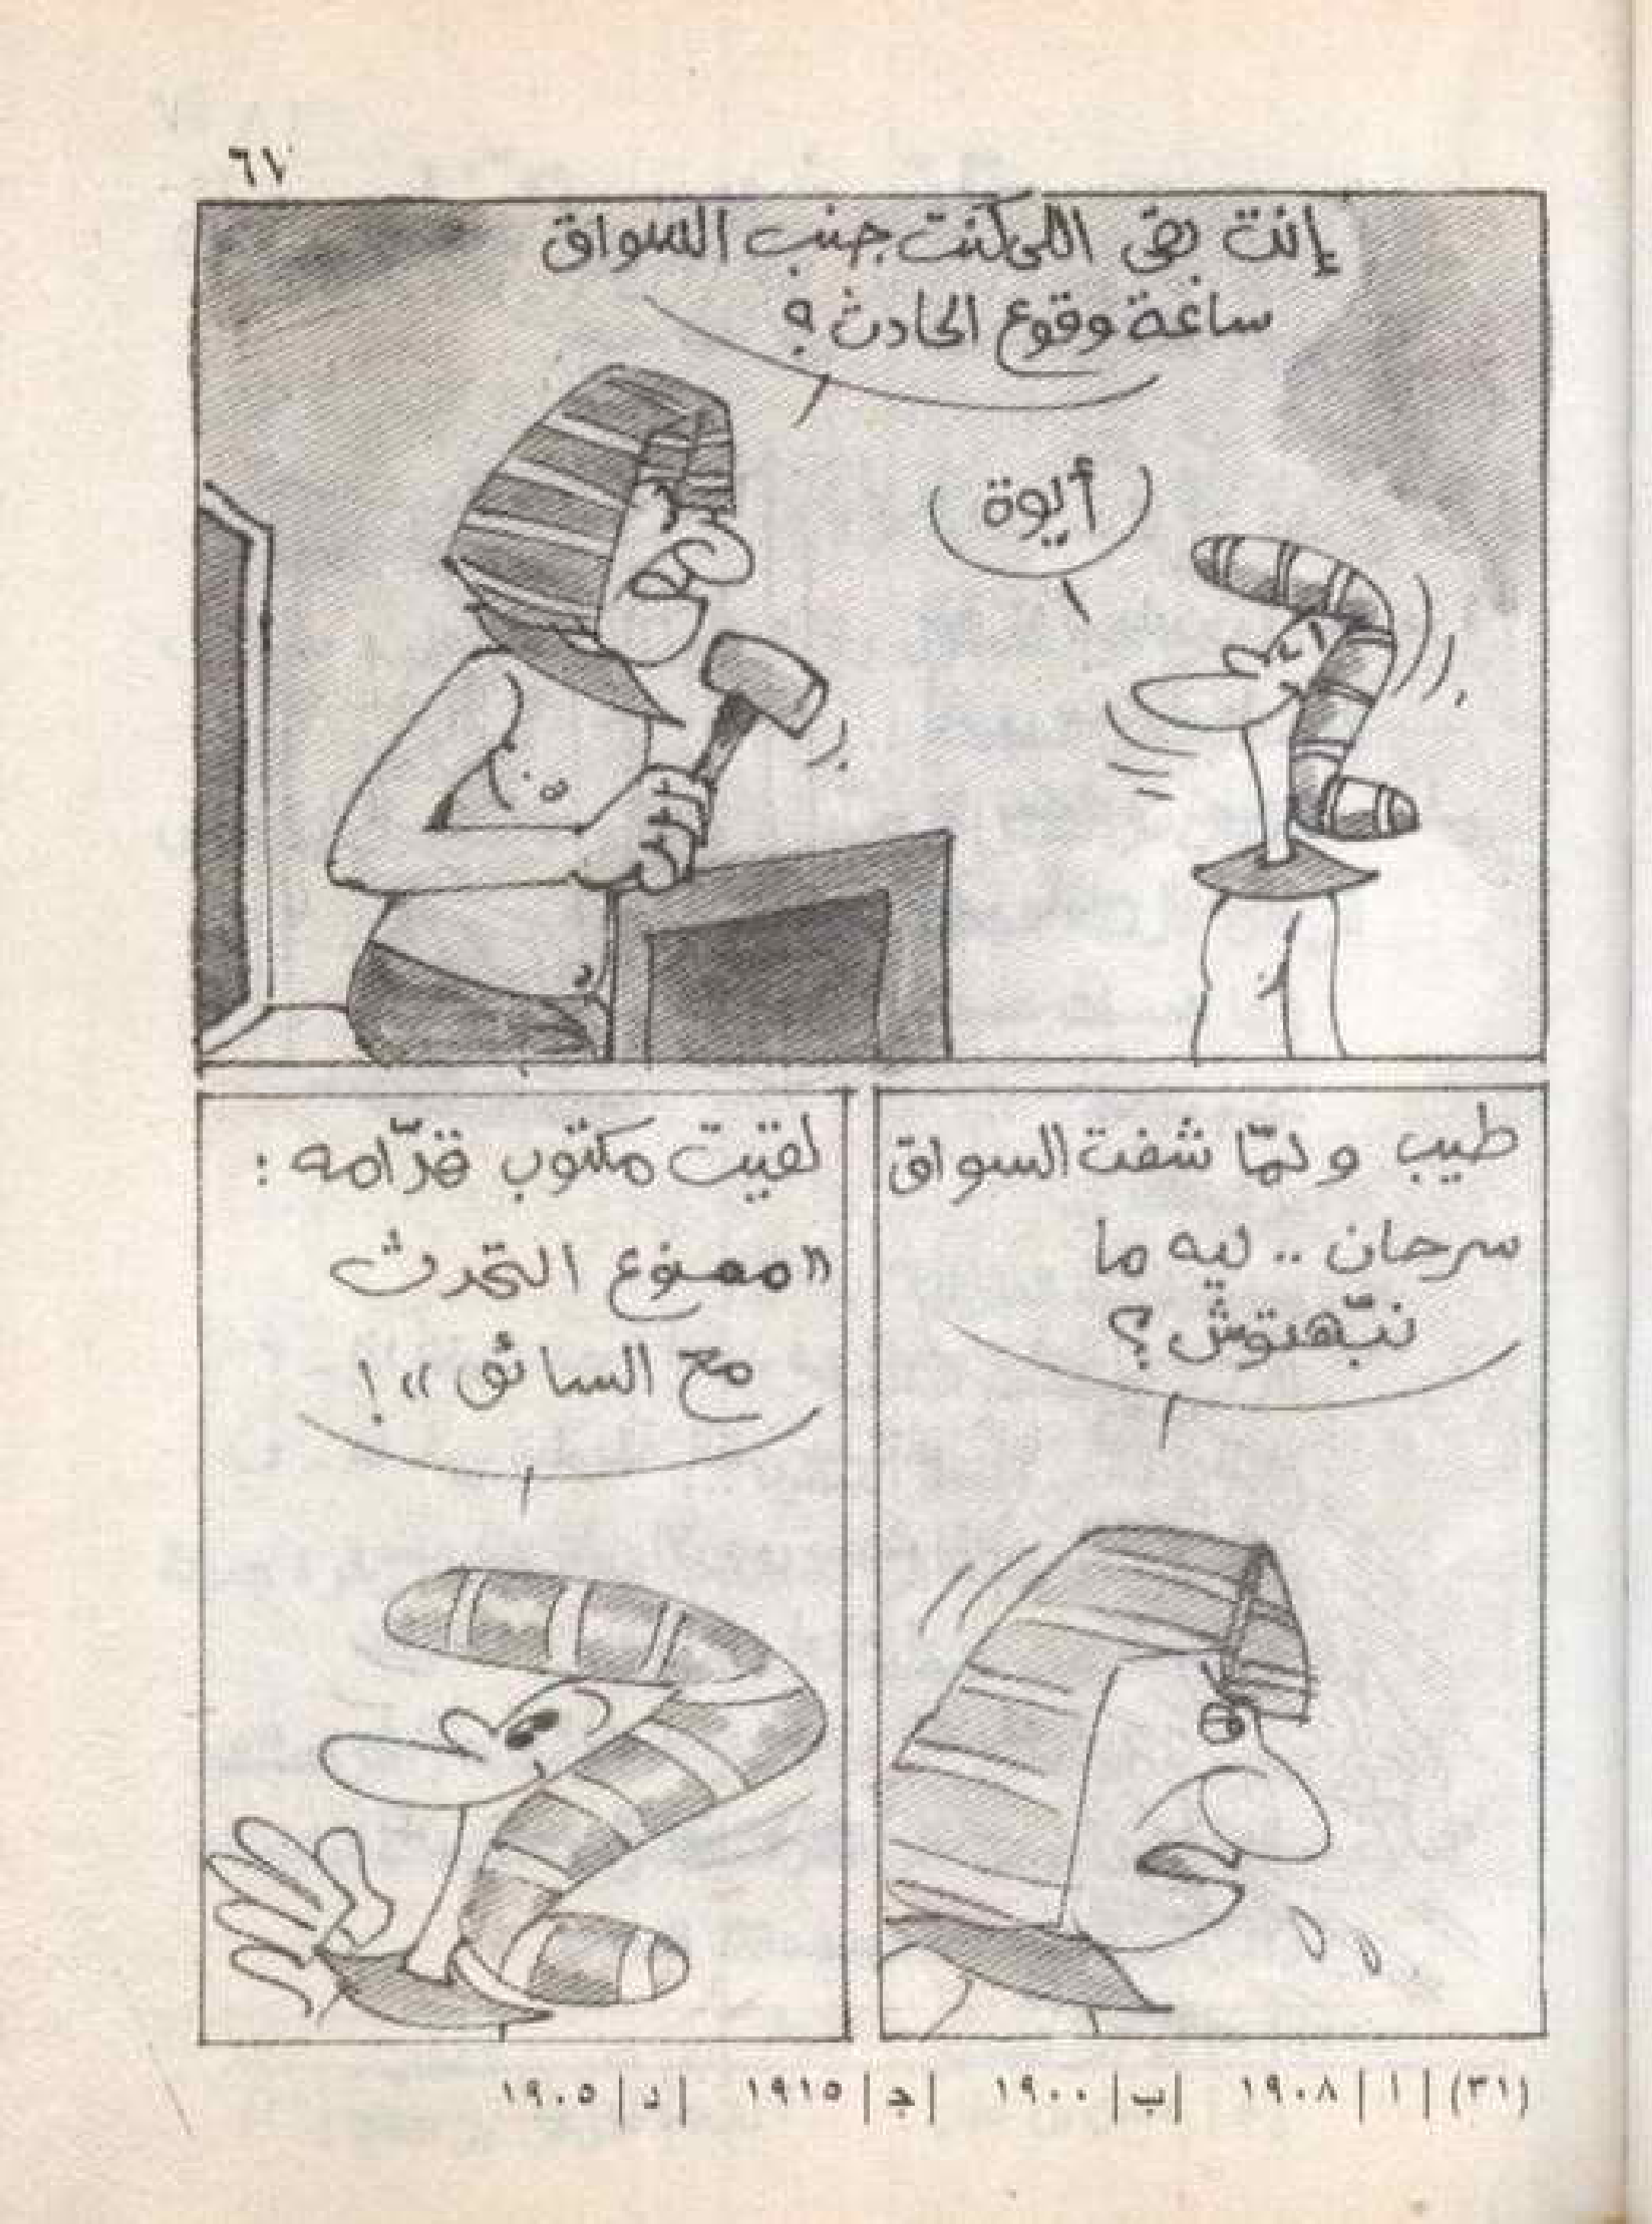 ٦٧
إنت بقى اللى كنت جنب السواق
ساعة وقوع الحادث ؟
أيوة
طيب ولمّا شفت السواق
سرحان .. ليه ما
نبّهتوش ؟
لقيت مكتوب قدّامه :
«ممنوع التحدث
مع السائق» !
(٣١) |أ| ١٩٠٨ |ب| ١٩٠٠ |ج| ١٩١٥ |د| ١٩٠٥